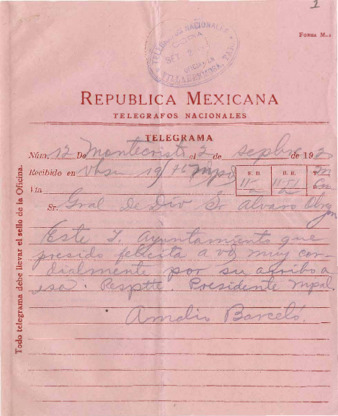 1
Forma M.
TELEGRAFOS NACIONALES
REPUBLICA MEXICANA
TELEGRAFOS NACIONALES
TELEGRAMA
Núm. 12 De Montecristo el 2 de sepbre de 192
Recibido en
H. D. H. R.
Vía
Sr. Gral. de Div Dn Alvaro Obregon
Este I. Ayuntamiento que
presido felicita a vd muy cor-
dialmente por su arribo a
esa. Resptte. Presidente Mpal.
Amelio Barceló.
Todo telegrama debe llevar el sello de la Oficina.